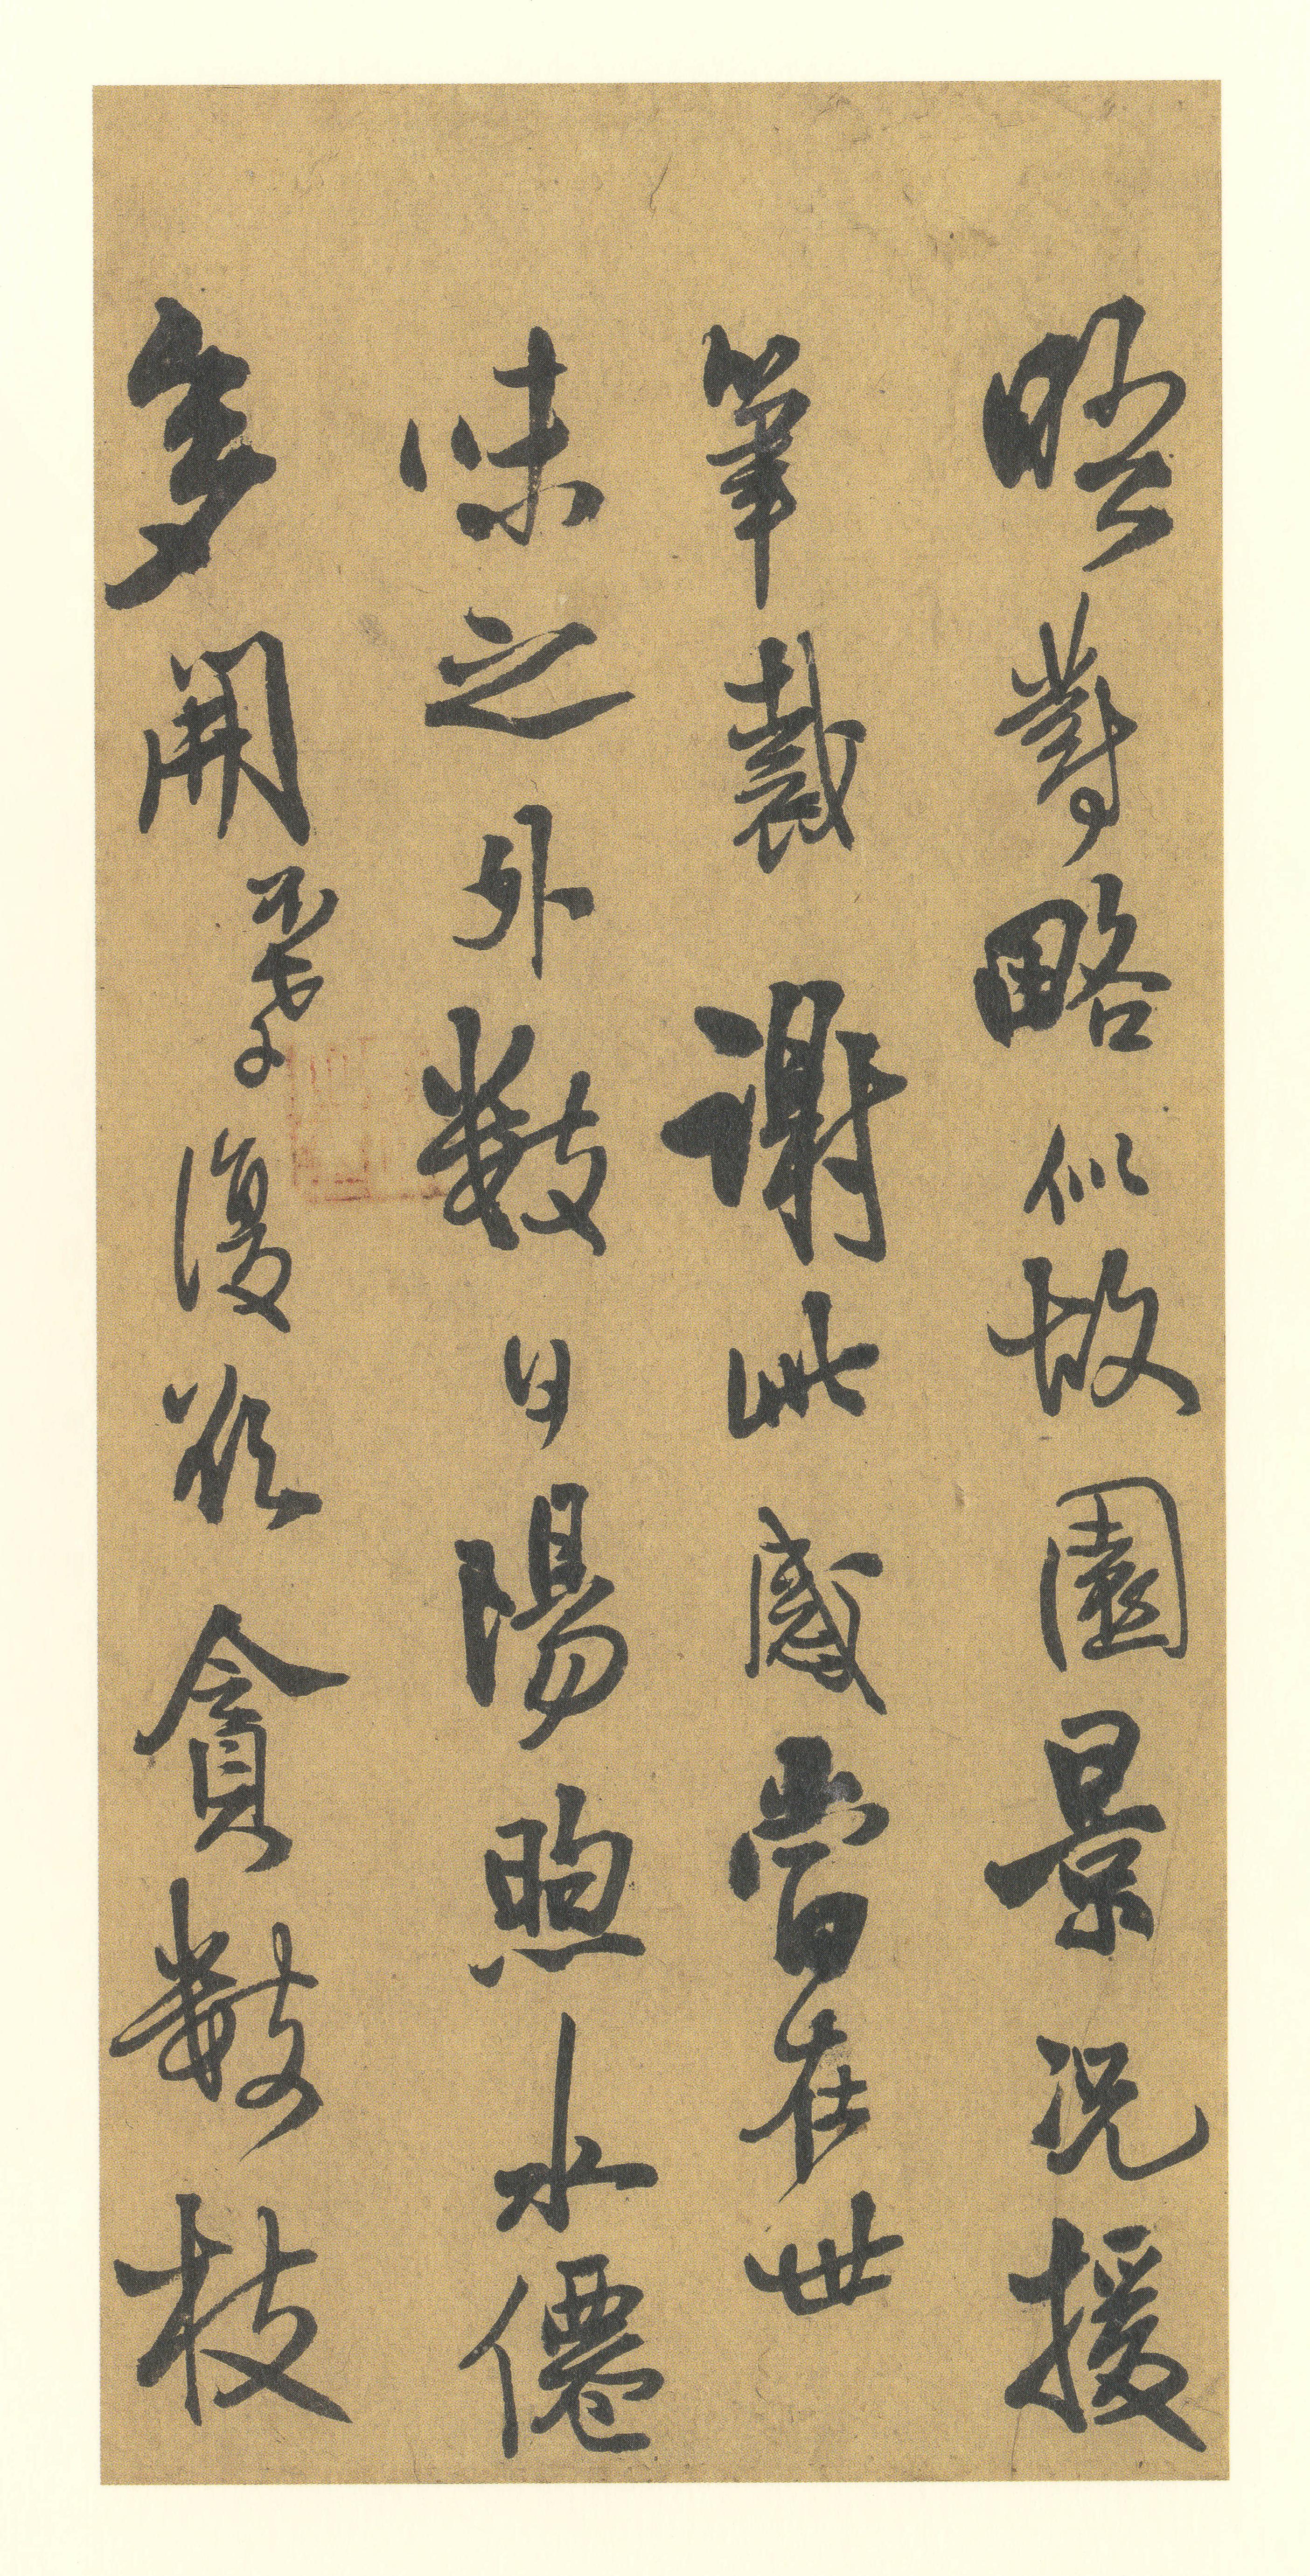 晤對略似故園景況援
筆裁謝此感當在世
味之外數日陽煦水僊
多開不孝復欲貪數枝